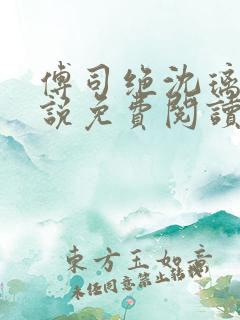 傅司绝沈璃
說免費閱讀
東方玉如意
未经同意禁止转载